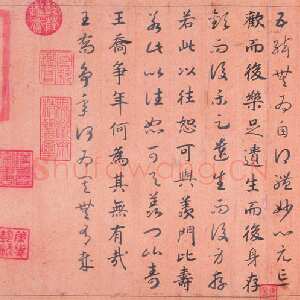 五絃無為自得體妙心元忘
歡而後樂足遺生而後身存
歡而後樂足遺生而後身存
若此以往恕可與羨門比壽
若此以往恕可與羨門比壽
王喬爭年何為其無有哉
王喬爭年何為其無有哉
Shufawang.CN